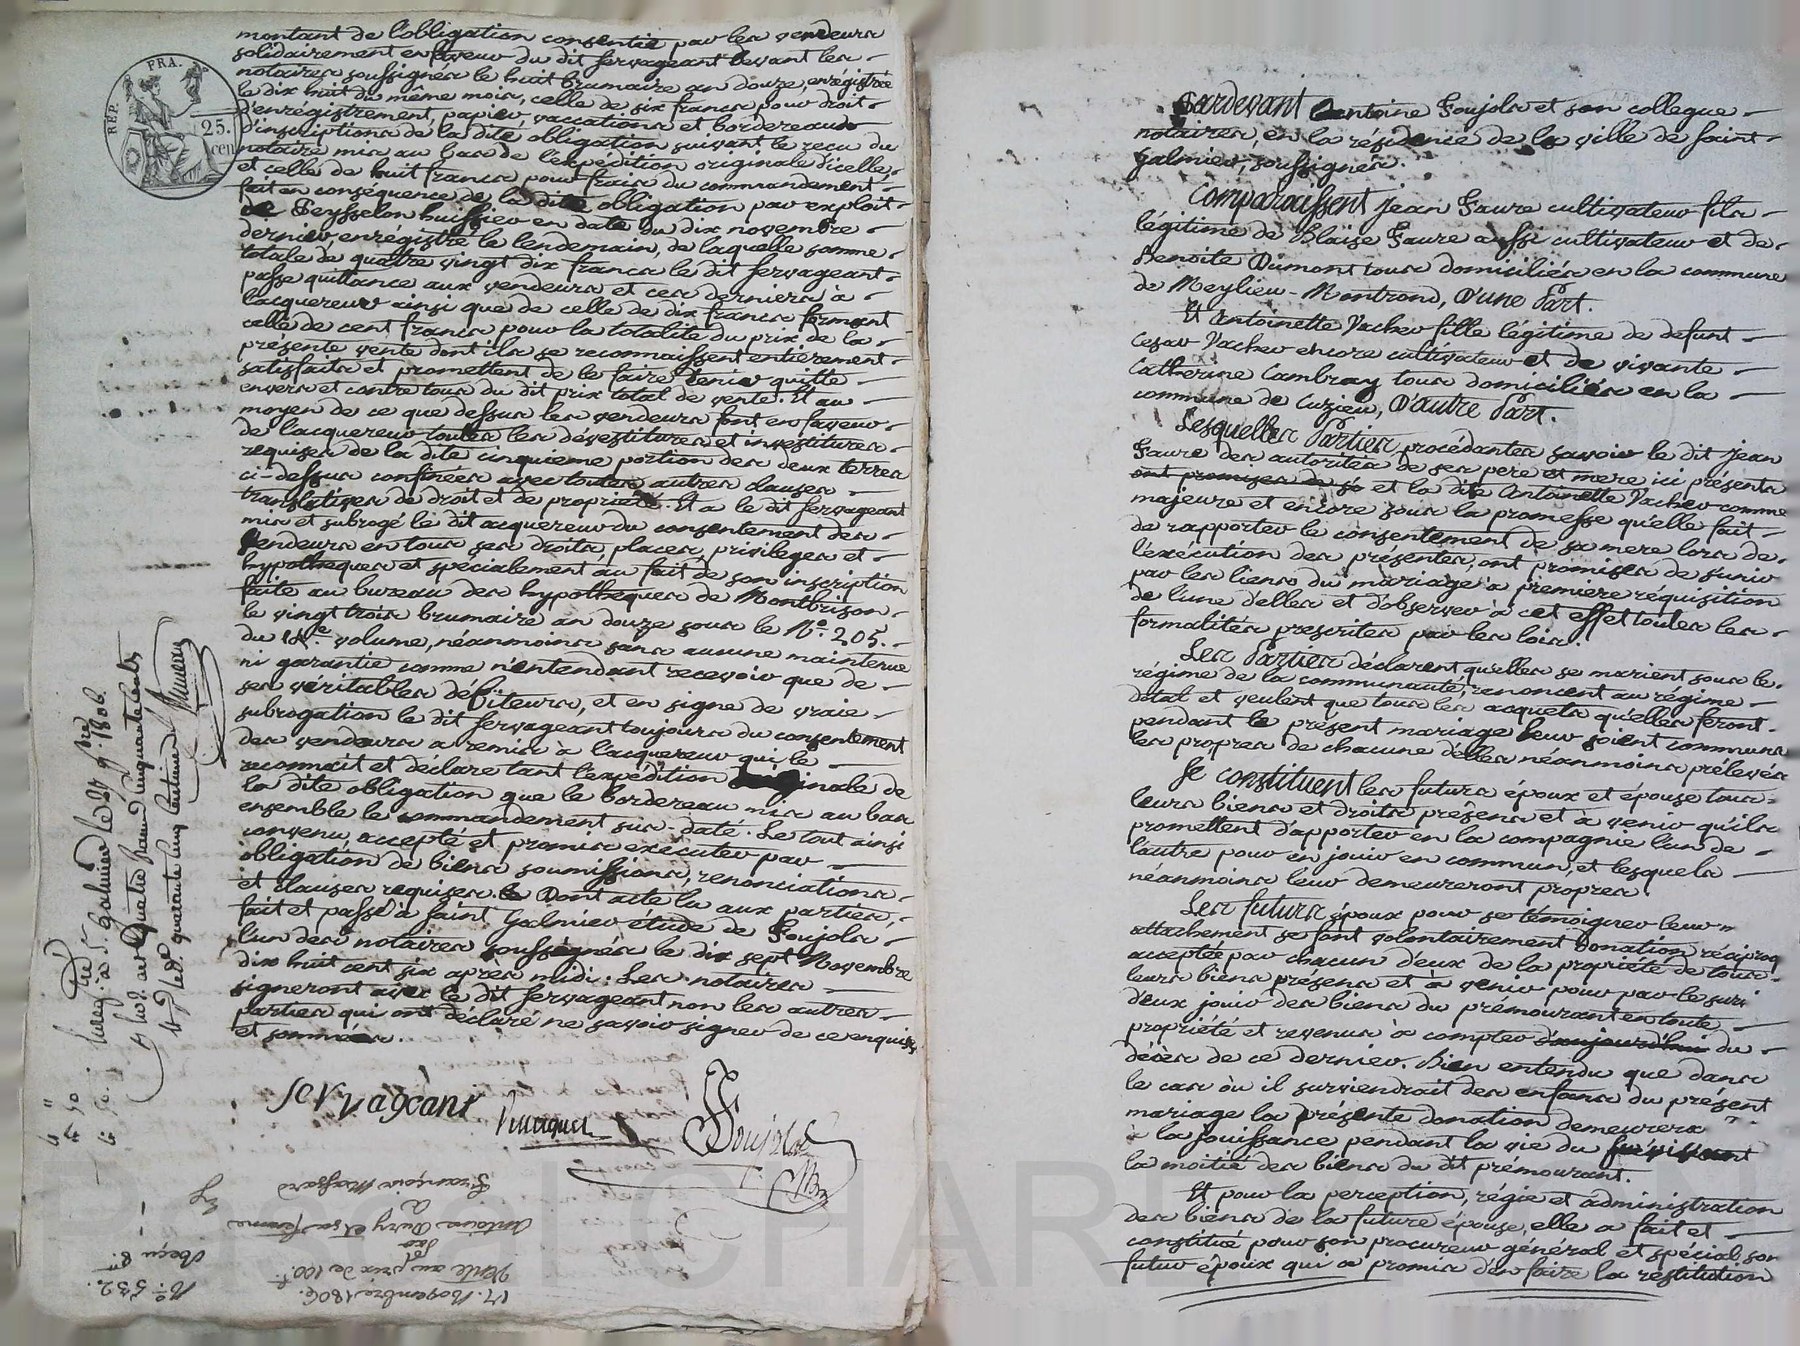 montant de l'obligation consentie par les vendeurs
solidairement en faveur du dit servageant devant les
notaires soussignés le huit brumaire an douze, enrégistrée
le dix huit du même mois, celle de six francs pour droit
d'enrégistrement, papier, vaccations et bordereaux
d'inscriptions de la dite obligation suivant le reçu du
notaire mis au bas de l'expédition originale d'icelle,
et celle de huit francs pour frais du commandement
fait en conséquence de la dite obligation par exploit
de Peysselon huissier en date du dix novembre
dernier, enrégistré le lendemain, de laquelle somme
totale de quatre vingt dix francs le dit servageant
passe quittance aux vendeurs et ces derniers à
l'acquereur ainsi que de celle de dix francs formant
celle de cent francs pour la totalité du prix de la
présente vente dont ils se reconnaissent entièrement
satisfaits et promettent de le faire tenir quitte
envers et contre tous du dit prix total de vente. Et au
moyen de ce que dessus les vendeurs font en faveur
de l'acquereur toutes les dévestitures et investitures
requises de la dite cinquieme portion des deux terres
ci-dessus confinées avec toutes autres clauses
translatives de droit et de propriété. Et a le dit servageant
mis et subrogé le dit acquereur du consentement des
vendeurs en tous ses droits, places, privileges et
hypotheques et spécialement au fait de son inscription
faite au bureau des hypotheques de Montbrison
le vingt trois brumaire an douze sous le N°. 205.
du volume, néanmoins sans aucune maintenue
ni garantie comme n'entendant recevoir que de
ses véritables débiteurs, et en signe de vraie
subrogation le dit servageant toujours du consentement
des vendeurs a remis à l'acquereur qui le
reconnait et déclare tant l'expédition originale de
la dite obligation que le bordereau mis au bas
ensemble le commandement sus-daté. Le tout ainsi
convenu, accepté et promis exécuter par
obligation de biens soumissions, renonciations
et clauses requises. Dont acte lu aux parties,
fait et passé à Saint Galmier étude de Poujols
l'un des notaires soussignés le dix sept Novembre
dix huit cent six après midi. Les notaires
signeront avec le dit servageant non les autres
parties qui ont déclaré ne savoir signer de ce enquises
et sommées.
Servageant
Poujols
REP. FRA.
25.
cen
17. Novembre 1806.
Vente au prix de 100 f.
par
Antoine Dury et sa femme
a
François Massard
N°. 532.
Reçu 8.
Pardevant Antoine Poujols et son collegue
notaires, en la résidence de la ville de Saint
Galmier, soussignés.
Comparaissent Jean Faure cultivateur fils
légitime de Blaise Faure aussi cultivateur et de
Benoite Dumont tous domiciliés en la commune
de Meylieu-Montrond, D'une Part.
Et Antoinette Vacher fille légitime de defunt
Cesar Vacher encore cultivateur et de vivante
Catherine Cambray tous domiciliés en la
commune de Cuzieu, D'autre Part.
Lesquelles Parties, procédantes savoir le dit Jean
Faure des autorités de ses pere et mere ici présents
ont promises de se et la dite Antoinette Vacher comme
majeure et encore sous la promesse qu'elle fait
de rapporter le consentement de sa mere lors de
l'exécution des présentes, ont promises de s'unir
par les liens du mariage à premiere réquisition
de l'une d'elles et d'observer à cet effet toutes les
formalités prescrites par les lois.
Les Parties déclarent, qu'elles se marient sous le
régime de la communauté, renoncent au régime
dotal et veulent que tous les acquets qu'elles feront
pendant le présent mariage leur soient communs
les propres de chacune d'elles néanmoins prélevés
Se constituent les futurs époux et épouse tous
leurs biens et droits présens et à venir qu'ils
promettent d'apporter en la compagnie l'un de
l'autre pour en jouir en commun, et lesquels
néanmoins leur demeureront propres.
Les futurs époux pour se témoigner leur
attachement se font volontairement Donation réciproq
acceptée par chacun d'eux de la propriété de tous
leurs biens présens et à venir pour par le survi
d'eux jouir des biens du prémourant en toute
propriété et revenus à compter d'aujourd'hui du
décès de ce dernier. Bien entendu que dans
le cas où il surviendrait des enfans du présent
mariage la présente donation demeurera
à la jouissance pendant la vie du survivant
la moitié des biens du dit prémourant.
Et pour la perception, régie et administration
des biens de la future épouse, elle a fait et
constitué pour son procureur général et spécial son
futur époux qui a promis d'en faire la restitution